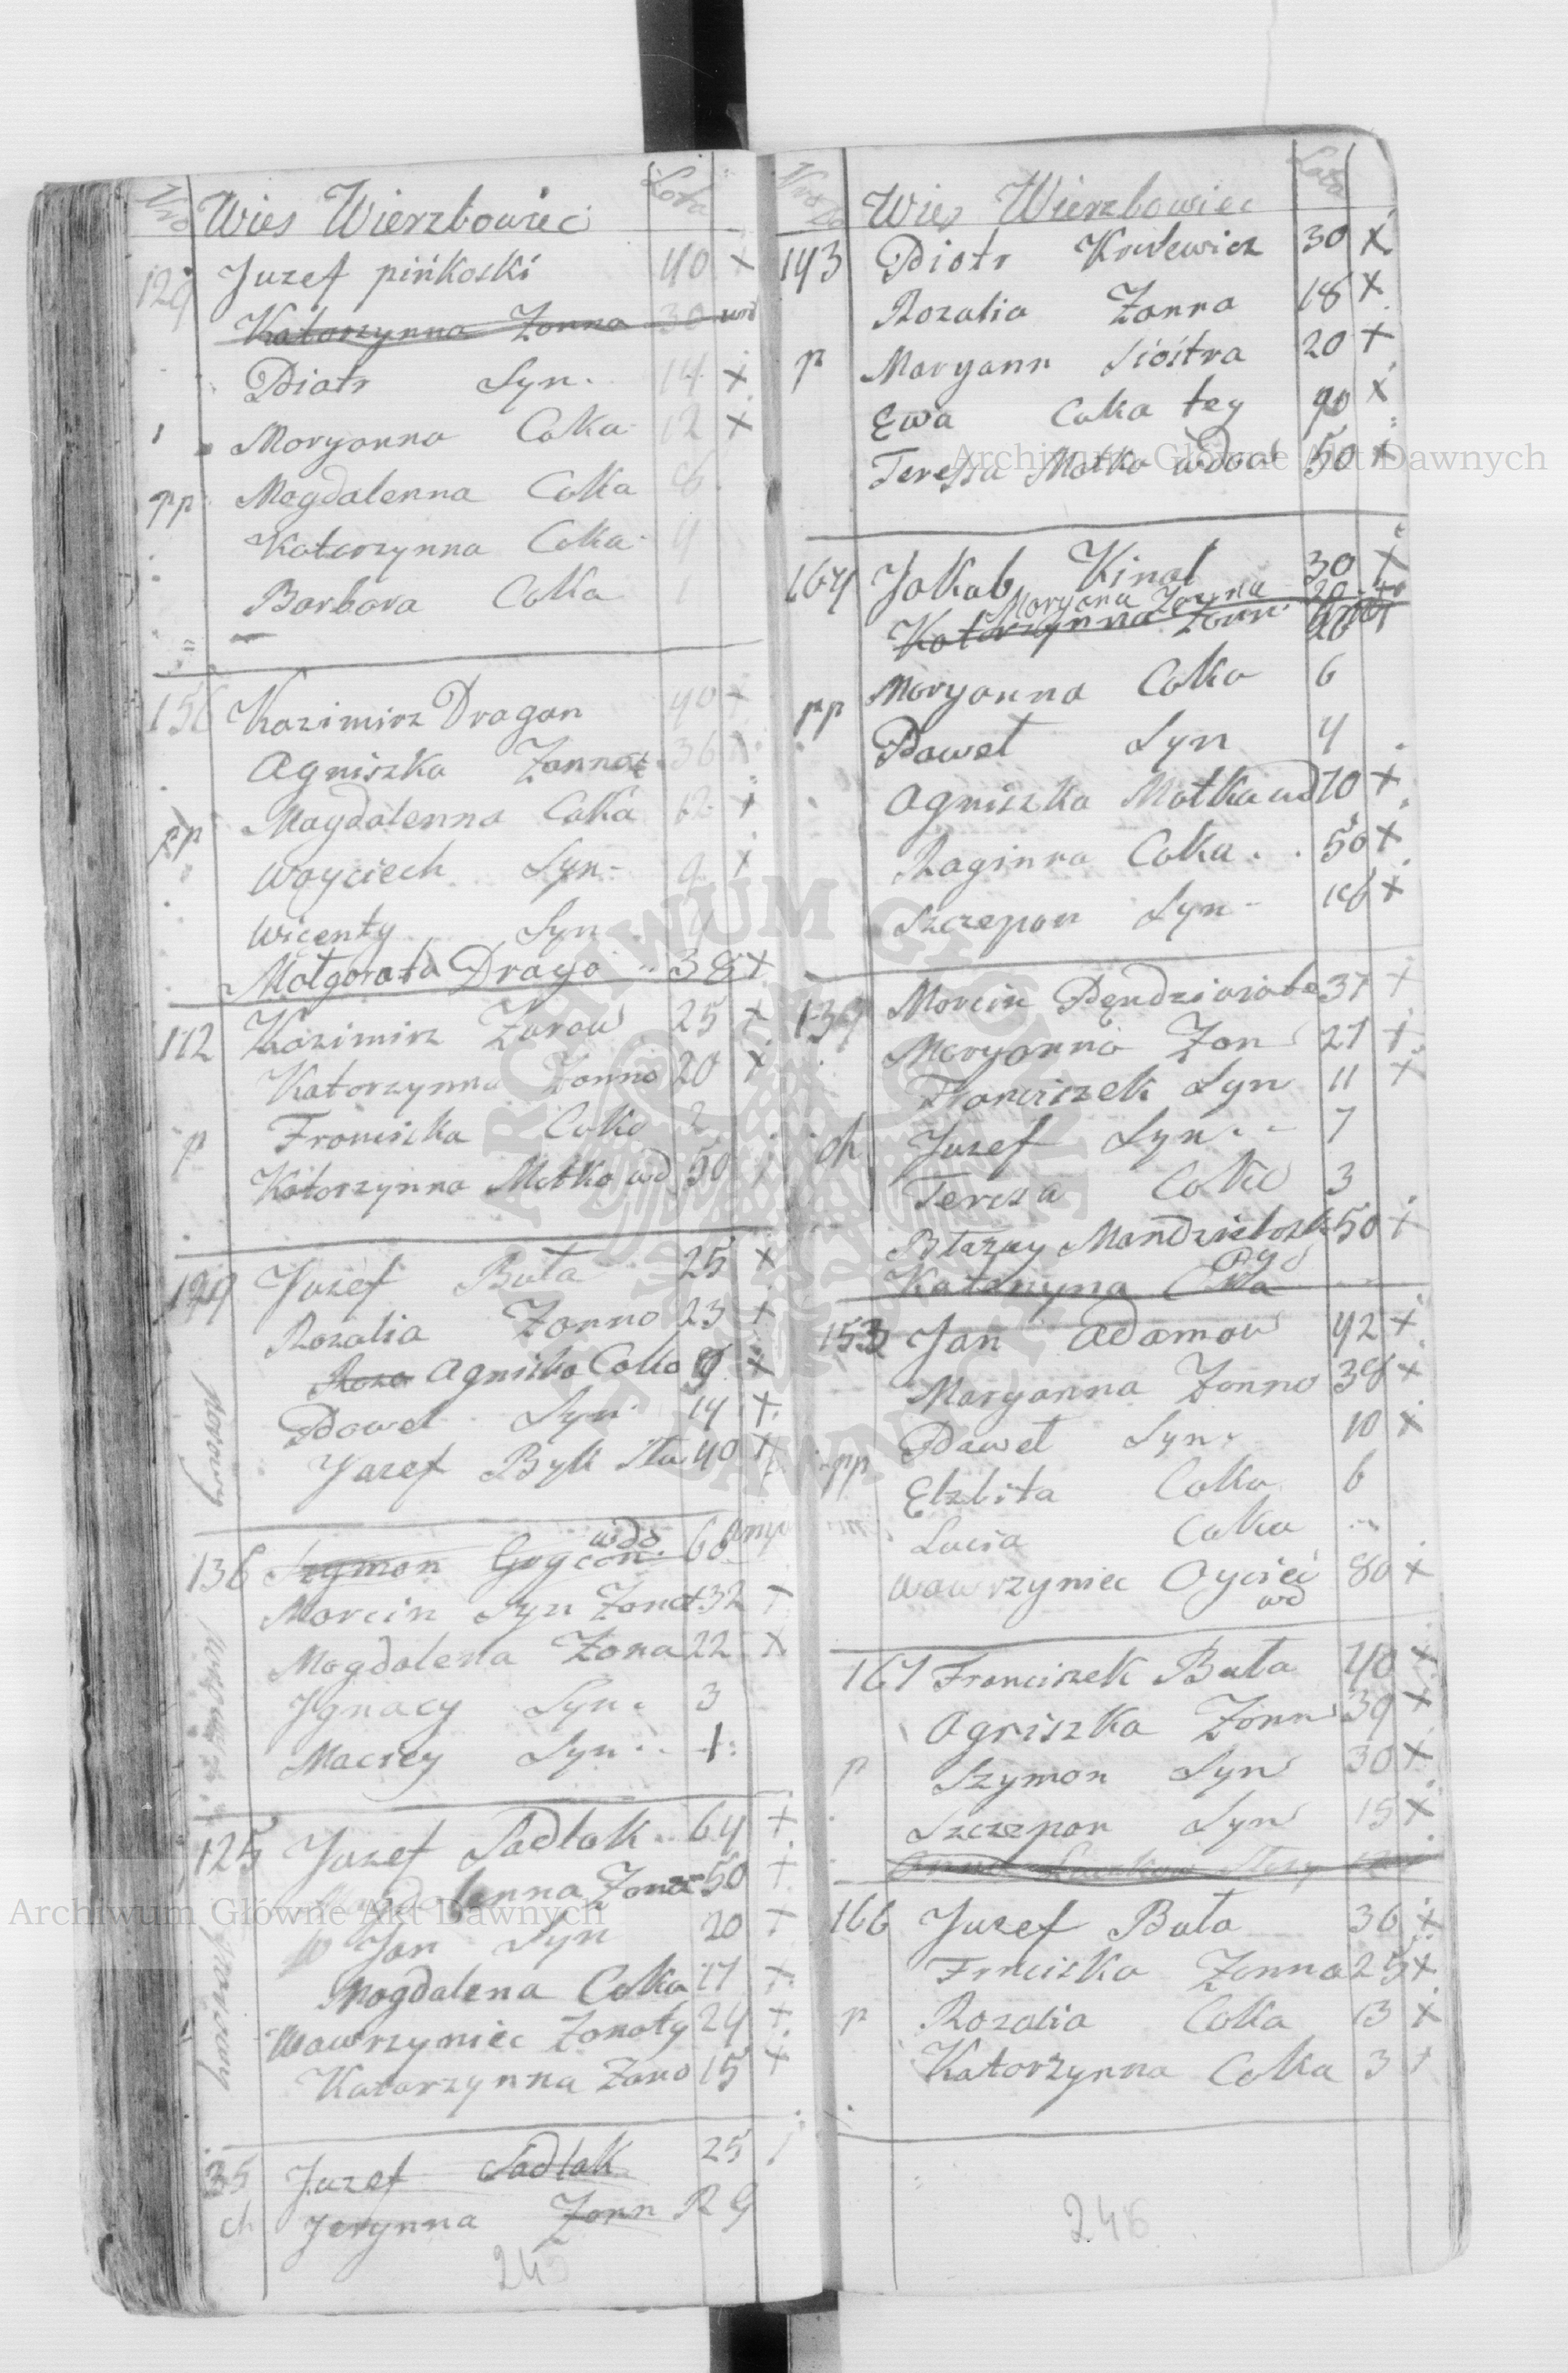 Nro Wies Wierzbowiec Lota
129 Juzef pińkoski 40 x
Katarzynna Zonna 30
Piotr Syn 14 x
Moryonna Coka 12 x
pp Magdalenna Coka 8
Katarzynna Coka 4
Barbara Coka 1
156 Kazimirz Dragan 40 x
Agniszka Zonna 36 x
pp Magdalenna Coka 12 x
Woyciech Syn 9 x
Wicenty Syn
Małgorata Drago 38 x
112 Kazimirz Zurow 25 x
Katorzynna Zonno 20 x
p Fronciszka Coka 2
Katorzynna Matka wd 50
149 Juzef Buta 25 x
Rozalia Zonno 23 x
Roza Agniszka Coka 9 x
Pawel Syn 14 x
Jazef Byk Stu 40 x
porowy
136 Szymon Grycon wdo 60
Morcin Syn Zonat 32 x
Magdalena Zona 22 x
Jgnacy Syn 3
Maciey Syn 1
125 Juzef Sadlak 64 x
Magdalenna Zona 50 x
Jan Syn 20 x
Mogdalena Coka 17 x
Wawrzyniec Zonoty 24 x
Katarzynna Zono 15 x
porowy
35 Juzef Sadlak 25
ch Jerynna Zonn
243
Nro Do Wies Wierzbowiec Lata
143 Piotr Krulewicz 30 x
Rozalia Zonna 18 x
p Maryann Siostra 20 x
Ewa Coka tey x
Teressa Matka wdowa 50 x
164 Jakub Kinal 30 x
Moryona Zonna 20
Katorzynna Zonn
pp Moryanna Coka 6
Pawel Syn 4
Agniszka Matka wd 70 x
Raginna Coka 50 x
Szczepan Syn 16 x
139 Morcin Pendziwiote 37 x
Moryonna Zon 27 x
Franciszek Syn 11 x
ch Juzef Syn 7
Teresa Coka 3
Btazey Mandzieloski 50 x
Katarzyna Cka
153 Jan Adamow 42 x
Maryanna Zonno 38 x
Pawel Syn 10 x
pp Elzbita Coka 6
Lucia Coka
Wawrzyniec Oyciec wd 80 x
161 Franciszek Buta 40 x
Agniszka Zonn 39 x
p Szymon Syn 30 x
Szczepon Syn 15 x
166 Juzef Buta 36 x
Frnciszka Zonna 25 x
p Rozalia Coka 13 x
Katorzynna Coka 3
246
Archiwum Główne Akt Dawnych
Archiwum Główne Akt Dawnych
ARCHIWUM GŁÓWNE AKT DAWNYCH